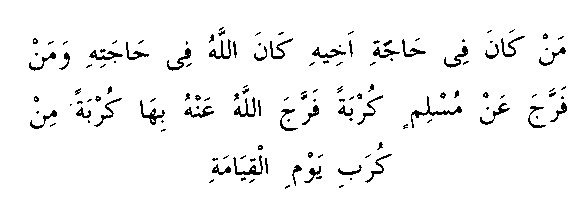 مَنْ كَانَ فِى حَاجَةِ اَخِيهِ كَانَ اللَّهُ فِى حَاجَتِهِ وَمَنْ
فَرَّجَ عَنْ مُسْلِمٍ كُرْبَةً فَرَّجَ اللَّهُ عَنْهُ بِهَا كُرْبَةً مِنْ
كُرَبِ يَوْمِ الْقِيَامَةِ